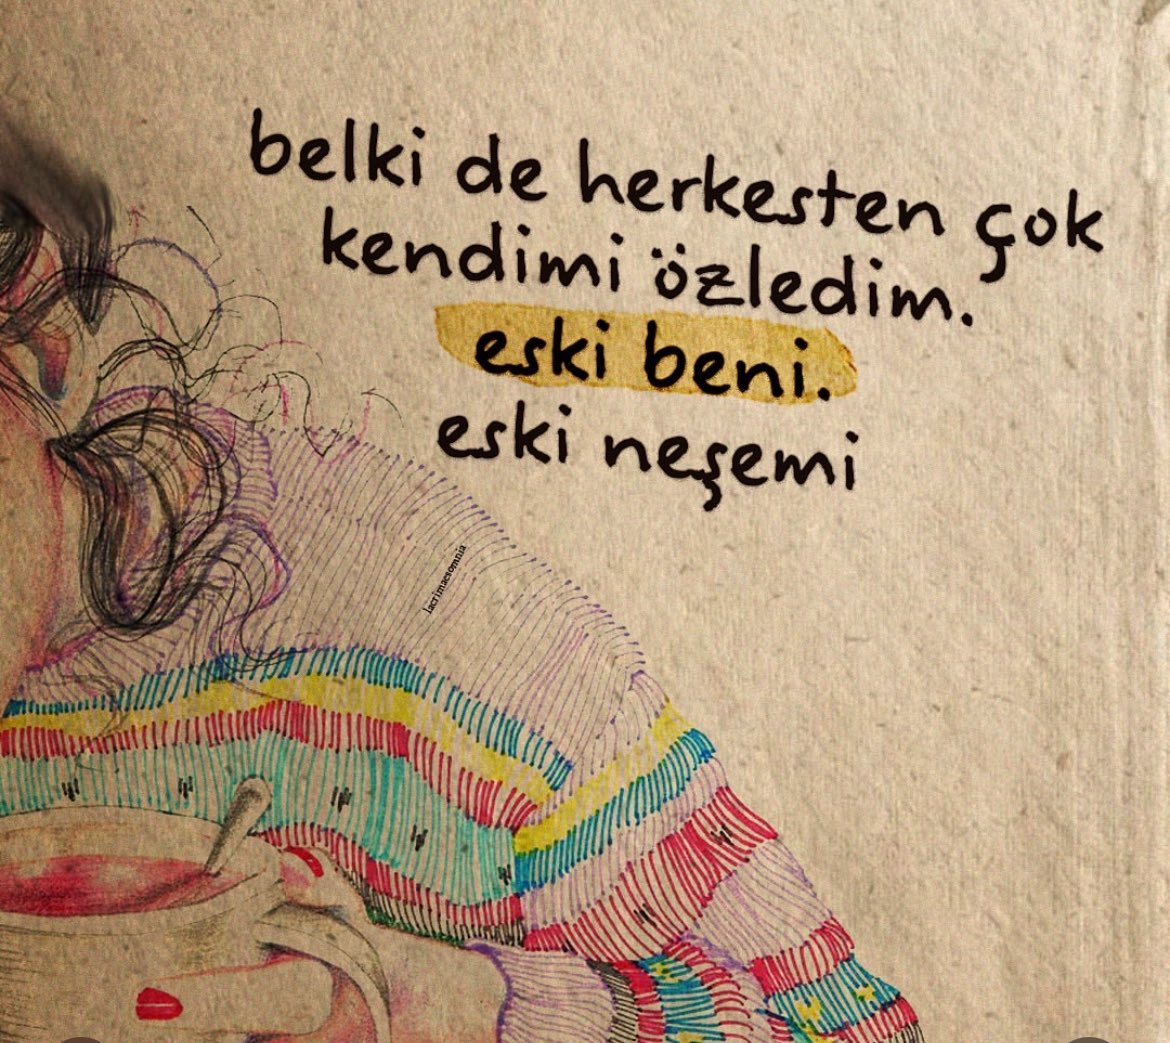 belki de herkesten çok
kendimi özledim.
eski beni.
eski neşemi
lacrimaesomnia